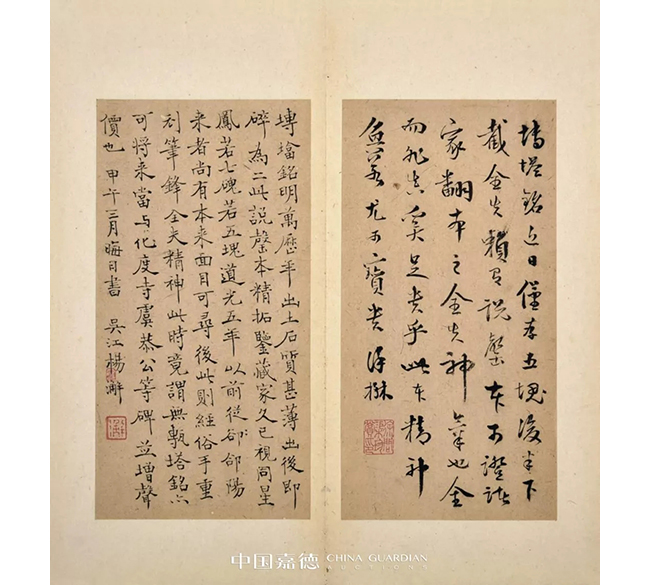 塔銘近日僅存五塊後半下
截全失賴有說磬本可證諸
家翻本之全失神氣也全
而非真奚足貴乎此本精神
尤可寶貴
塼墖銘明萬歷年出土石質甚薄出後即
碎為二此說磬本精拓鑒藏家久已視同星
鳳若七磈若五塊道光五年以前從郃陽
來者尚有本来面目可尋後此則經俗手重
刻筆鋒全失精神此時竟謂無甎塔銘亦
可將来當与化度寺虞恭公等碑並增聲
價也 甲午三月晦日書 吳江楊澥
中国嘉德 CHINA GUARDIAN
AUCTIONS